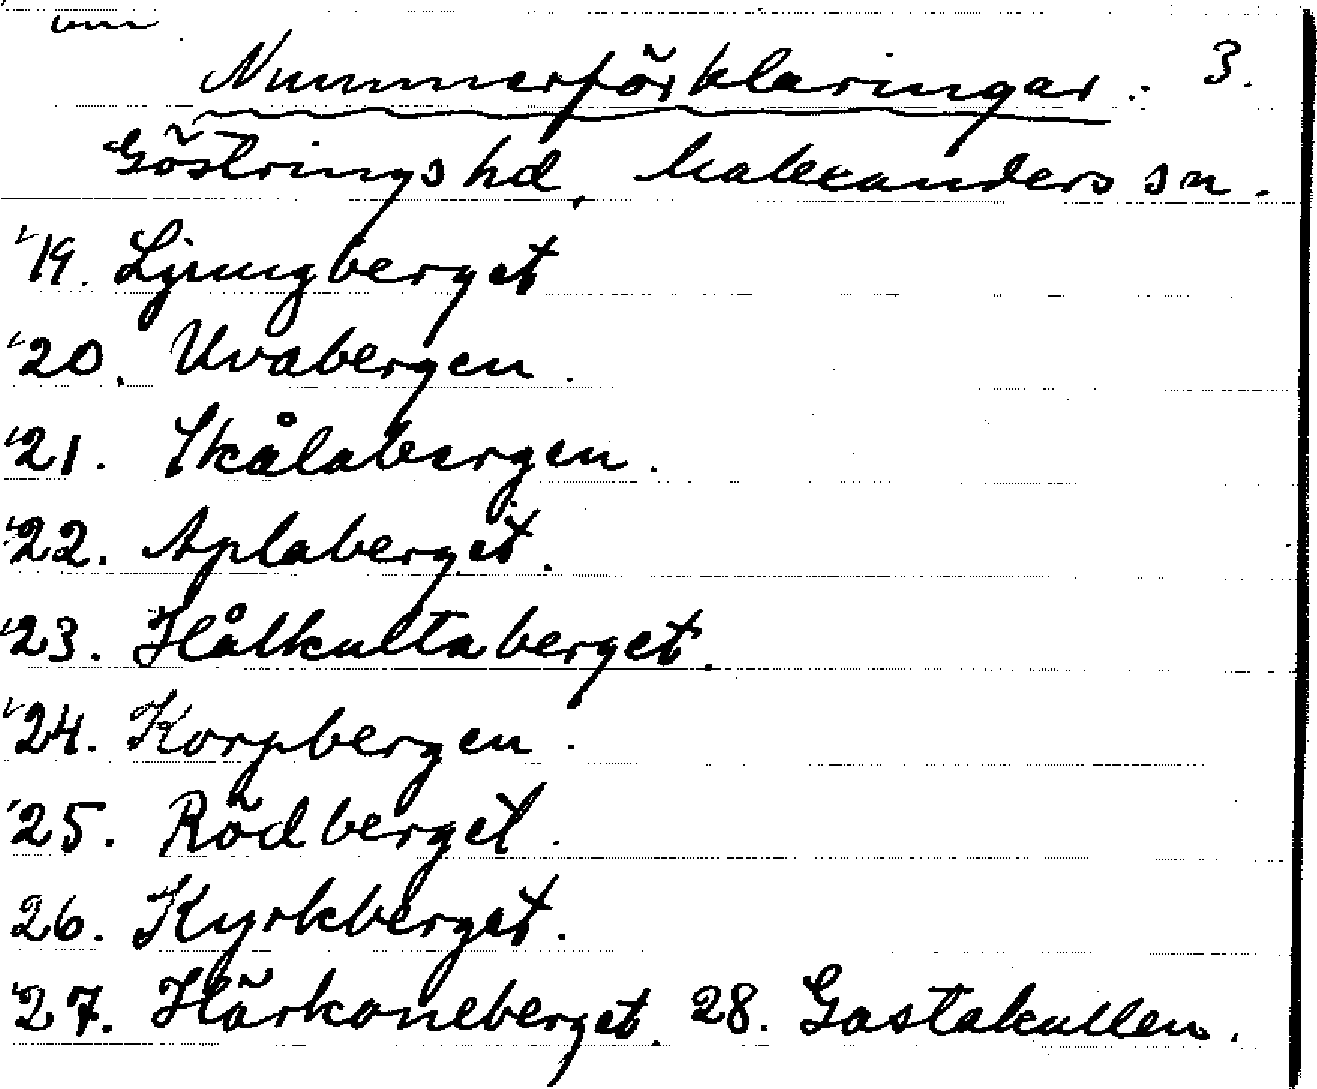 Nummerförklaringar. 3.
Göstrings hd, Malexanders sn.
19. Ljungberget
20. Uvabergen.
21. Skålabergen.
22. Aplaberget.
23. Hålkultaberget.
24. Korpbergen.
25. Rödberget.
26. Kyrkberget.
27. Härkoneberget. 28. Gastakullen.